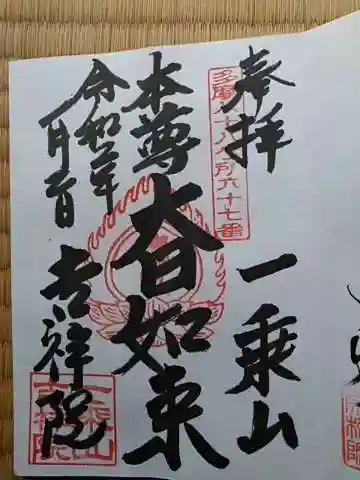 奉拝
多摩八十八ヶ所六十七番
一乗山
本尊
大日如来
令和二年
一月二日
吉祥院